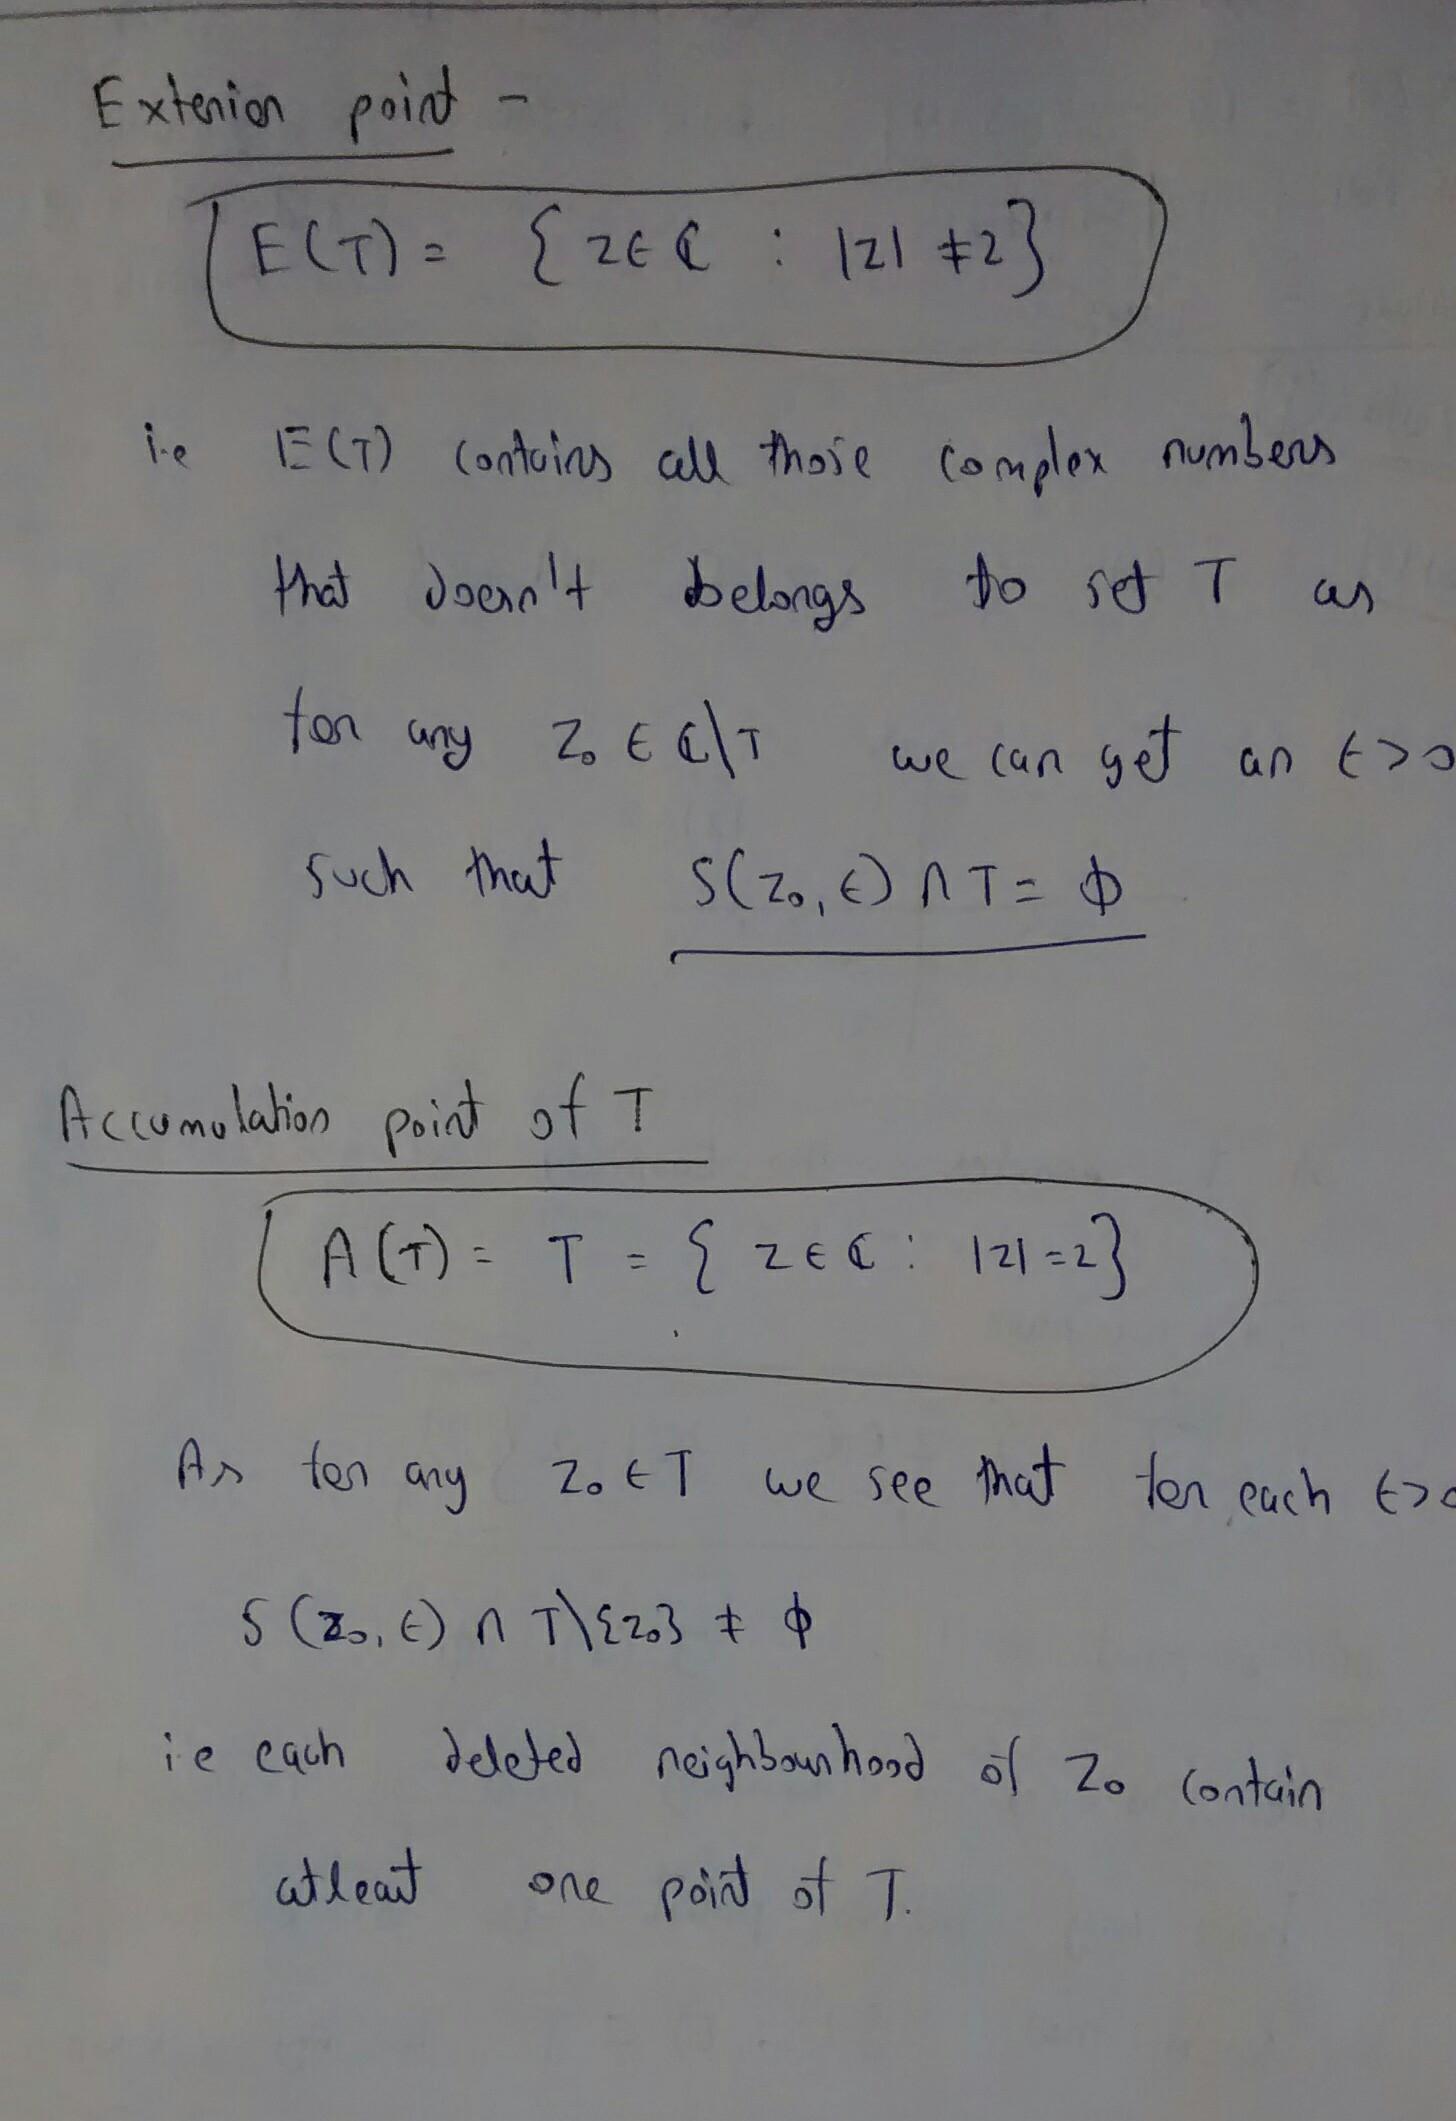 Exterior point -
E(T) = { z ∈ ℂ : |z| ≠ 2}
i.e E(T) contains all those complex numbers
that doesn't belongs to set T as
for any z₀ ∈ ℂ\T we can get an ϵ>0
such that S(z₀, ϵ) ∩ T = ϕ
Accumulation point of T
A(T) = T = { z ∈ ℂ : |z| = 2}
As for any z₀ ∈ T we see that for each ϵ>0
S (z₀, ϵ) ∩ T\{z₀} ≠ ϕ
i.e each deleted neighbourhood of z₀ contain
atleast one point of T.